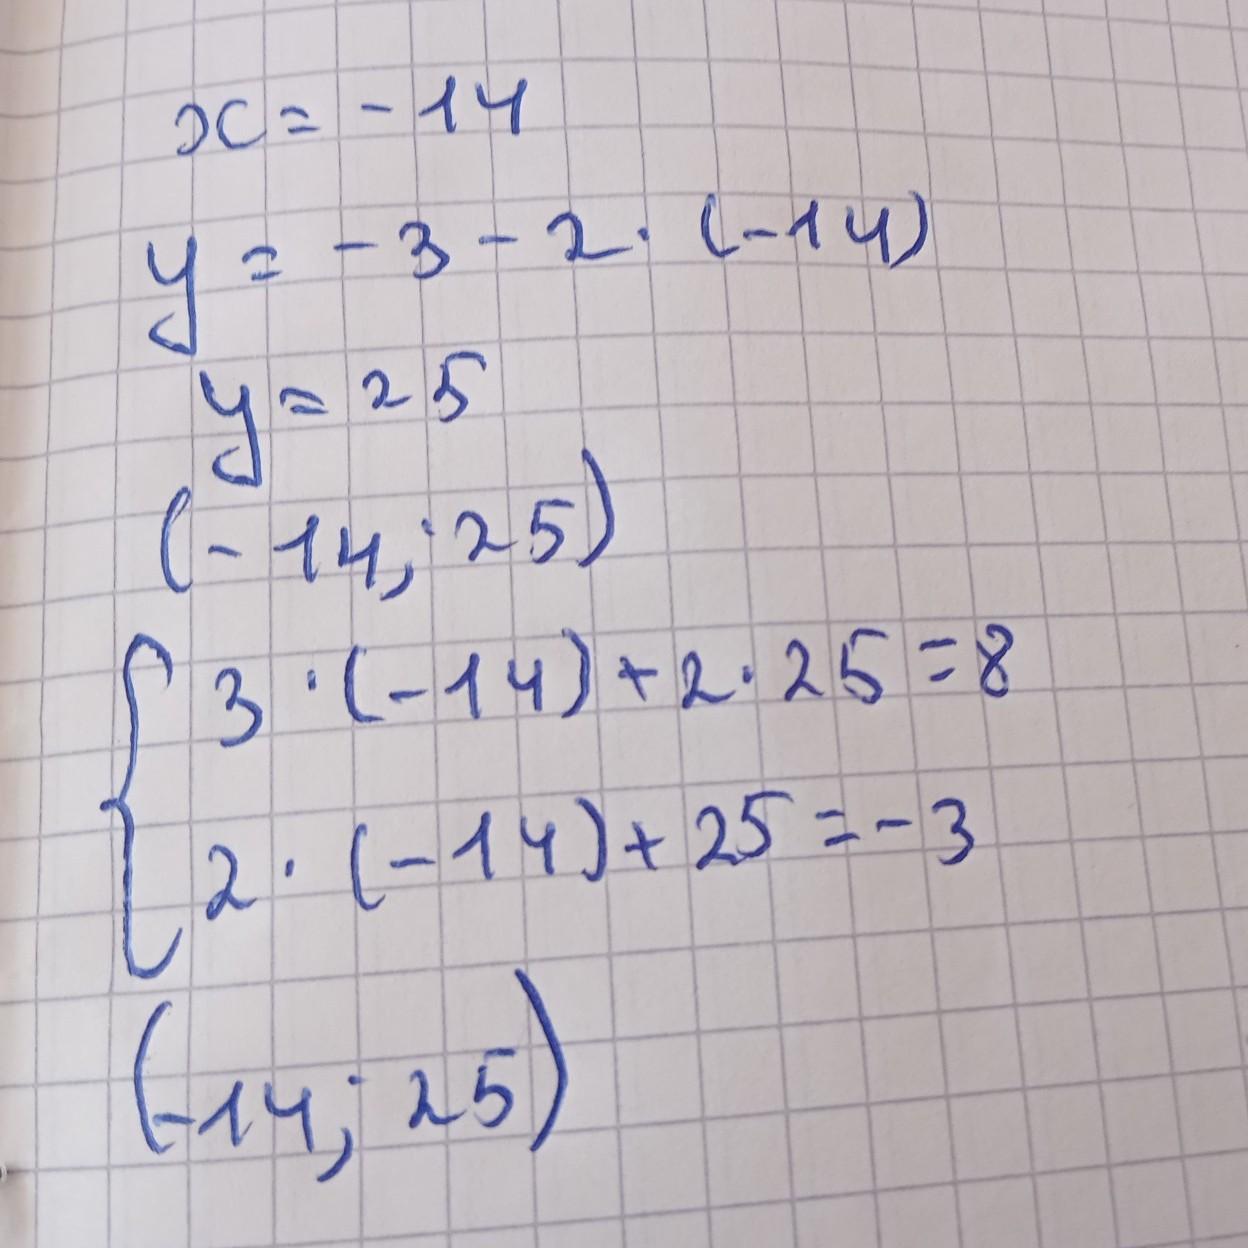 x = -14
y = -3 - 2 · (-14)
y = 25
(-14; 25)
{ 3 · (-14) + 2 · 25 = 8
2 · (-14) + 25 = -3
(-14; 25)